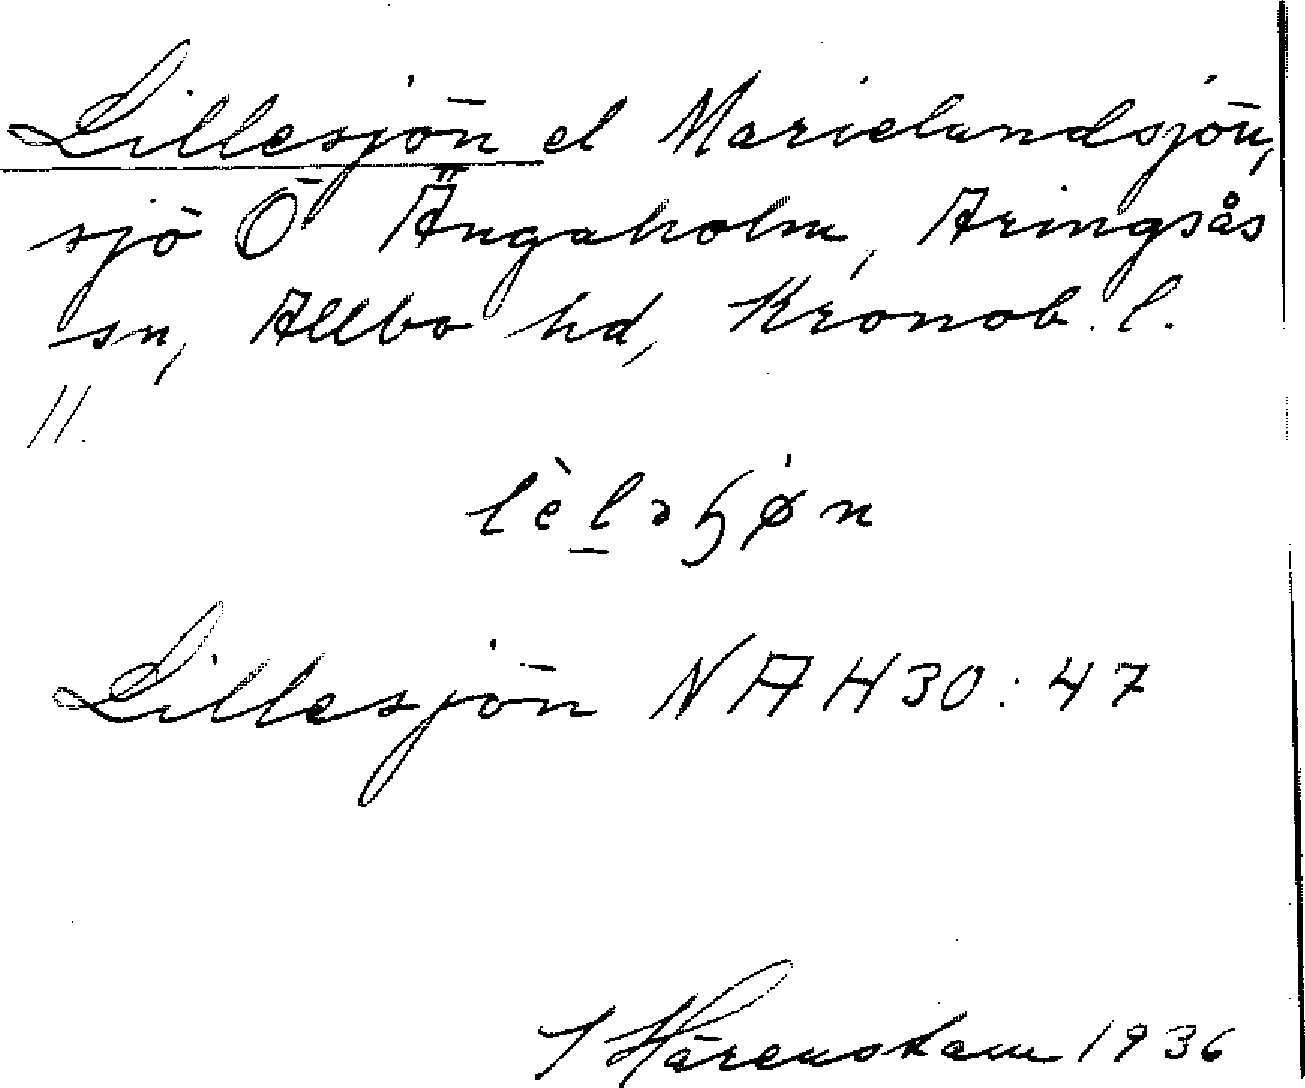 Lillesjön el Marielundsjön,
sjö Ö Ängaholm, Aringsås
sn, Allbo hd, Kronob. l.
11.
lèləɧøn
Lillesjön NAH30:47
Härenstam 1936